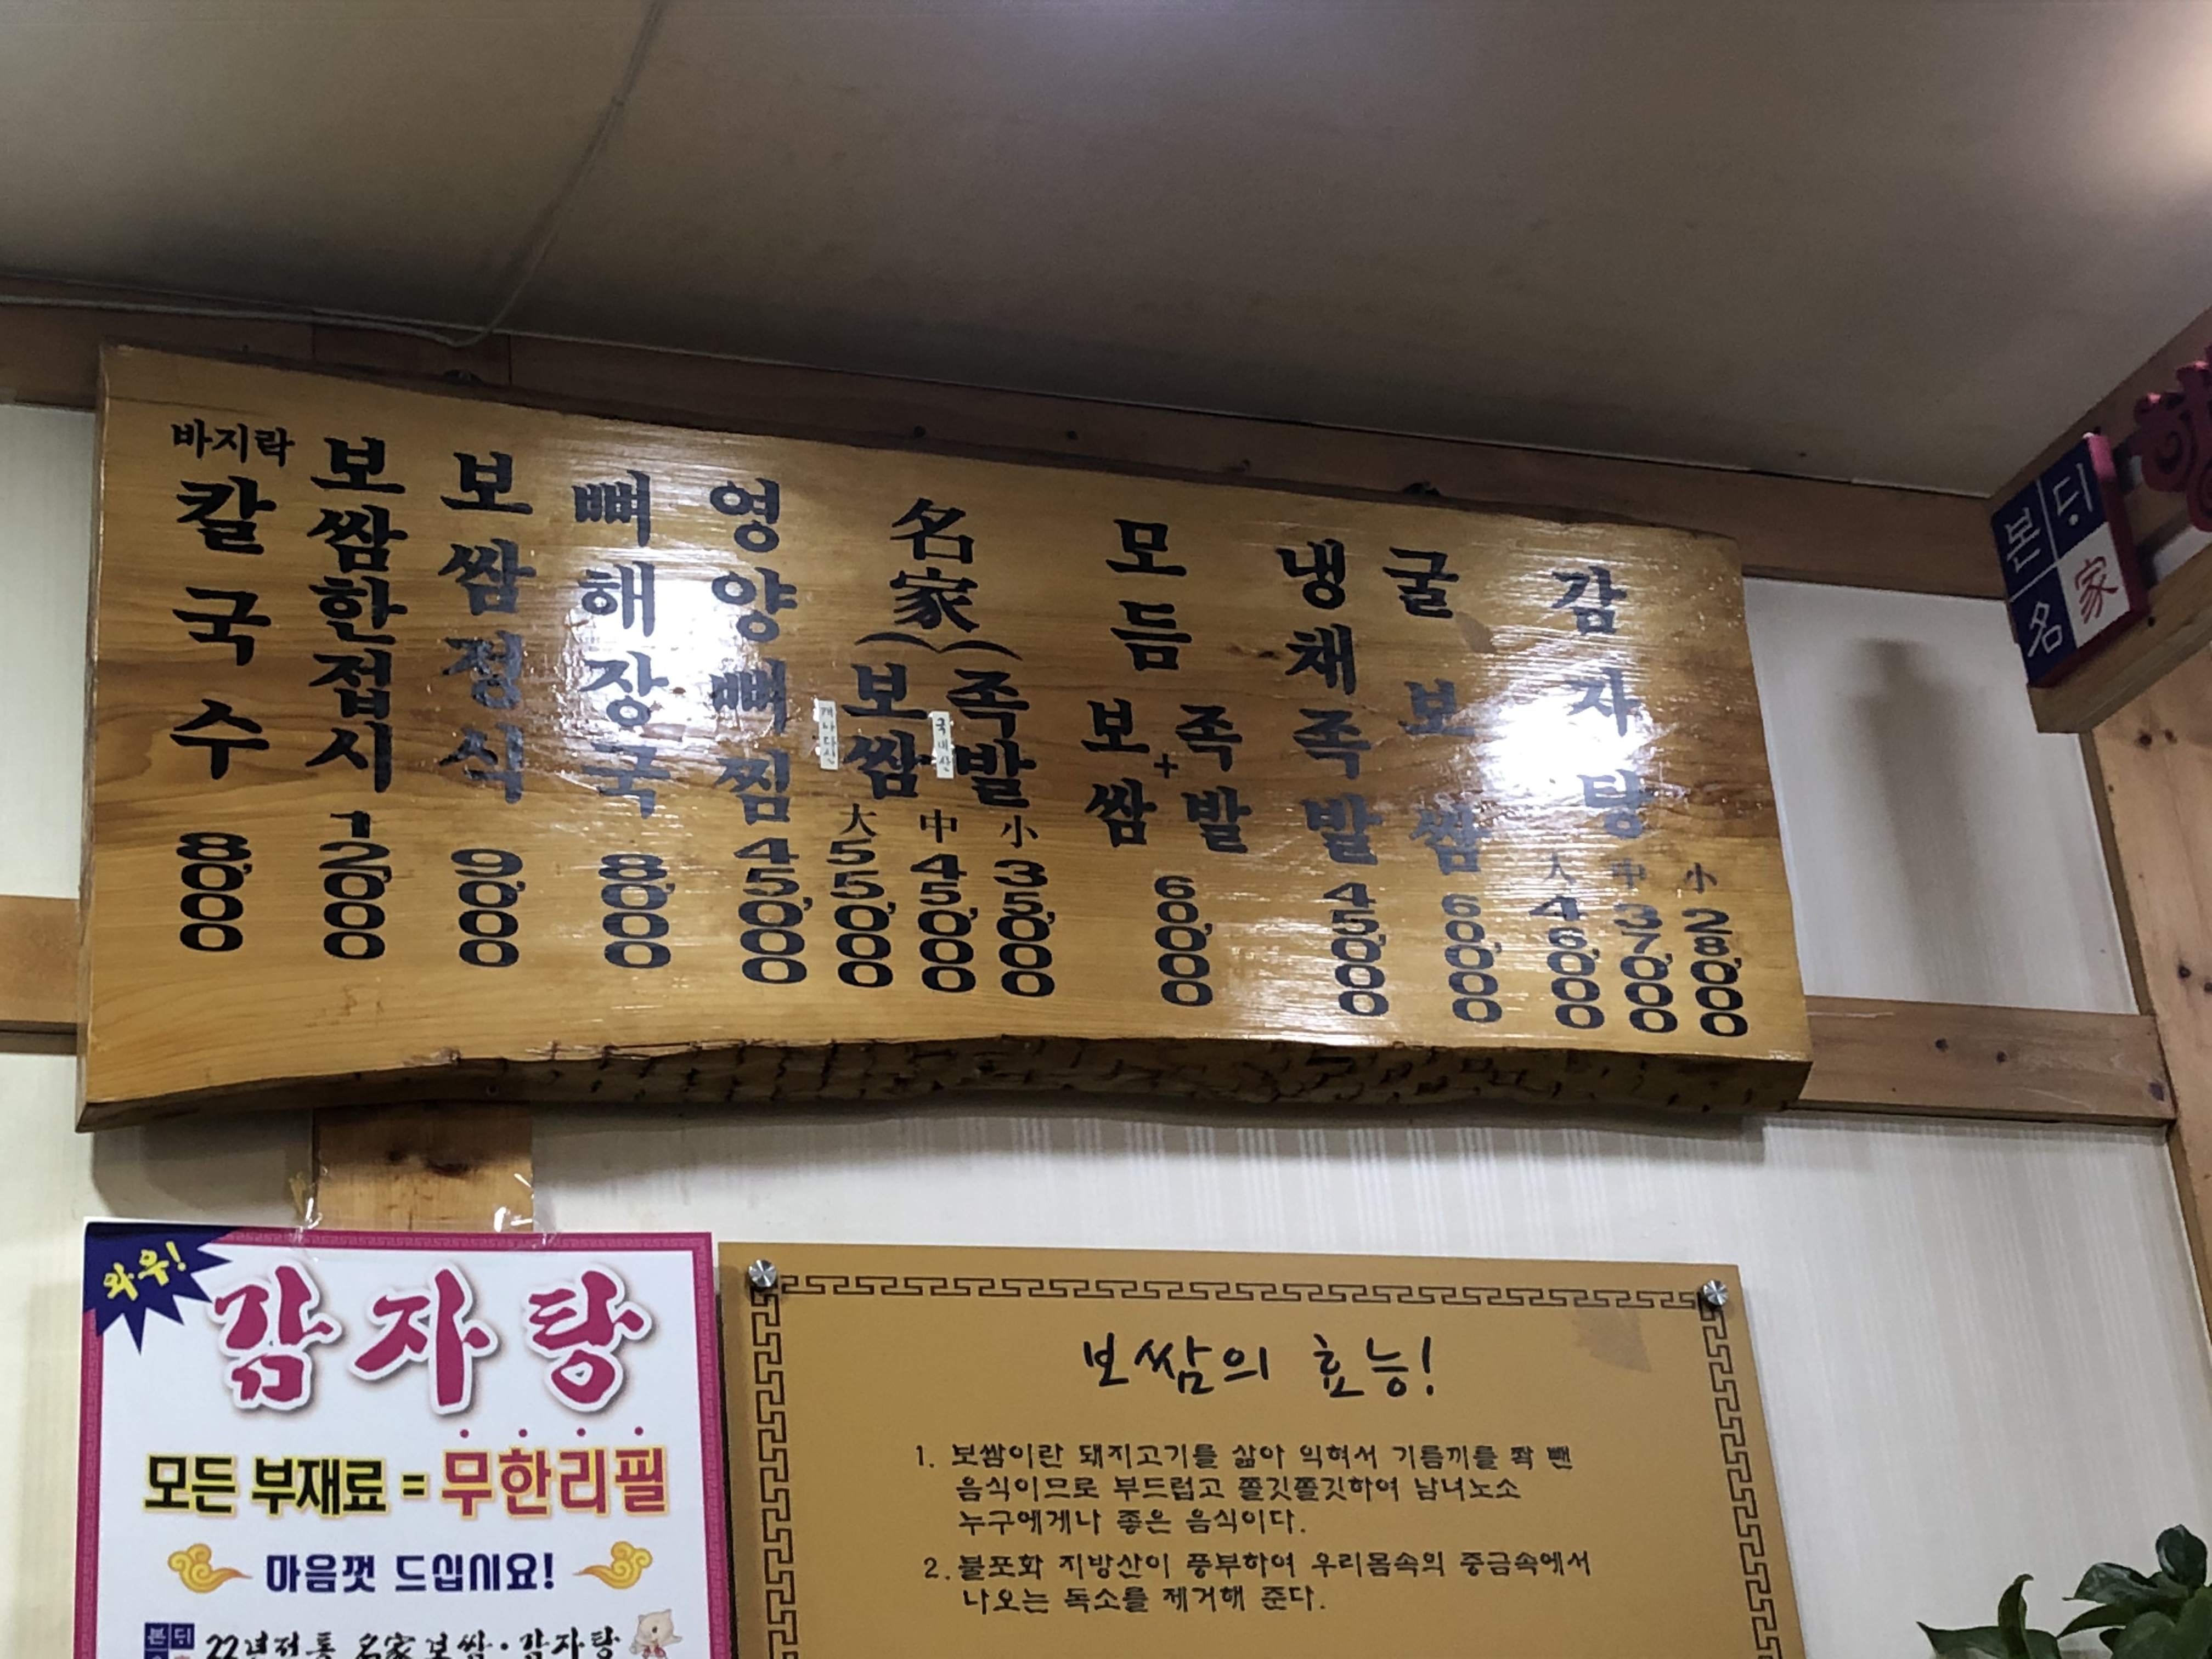 바지락
칼국수 8,000
보쌈한접시 12,000
보쌈정식 9,000
뼈해장국 8,000
영양뼈찜 45,000
名家(보쌈 족발
국내산
大 55,000
中 45,000
小 35,000
모듬
보쌈+족발 60,000
냉채족발 45,000
굴보쌈 60,000
감자탕
大 46,000
中 37,000
小 28,000
본디
名家
와우!
감자탕
모든 부재료 = 무한리필
마음껏 드십시요!
본디
22년전통 名家보쌈·감자탕
보쌈의 효능!
1. 보쌈이란 돼지고기를 삶아 익혀서 기름끼를 쫙 뺀
음식이므로 부드럽고 쫄깃쫄깃하여 남녀노소
누구에게나 좋은 음식이다.
2. 불포화 지방산이 풍부하여 우리몸속의 중금속에서
나오는 독소를 제거해 준다.